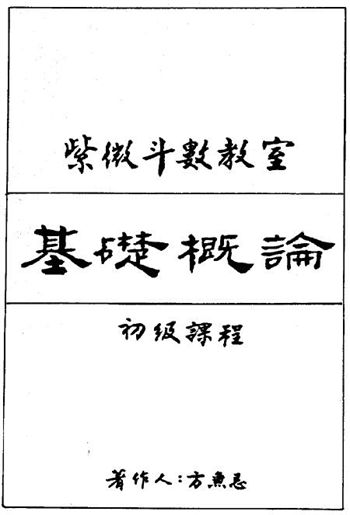 紫微斗數教室
基礎概論
初級課程
著作人：方無忌